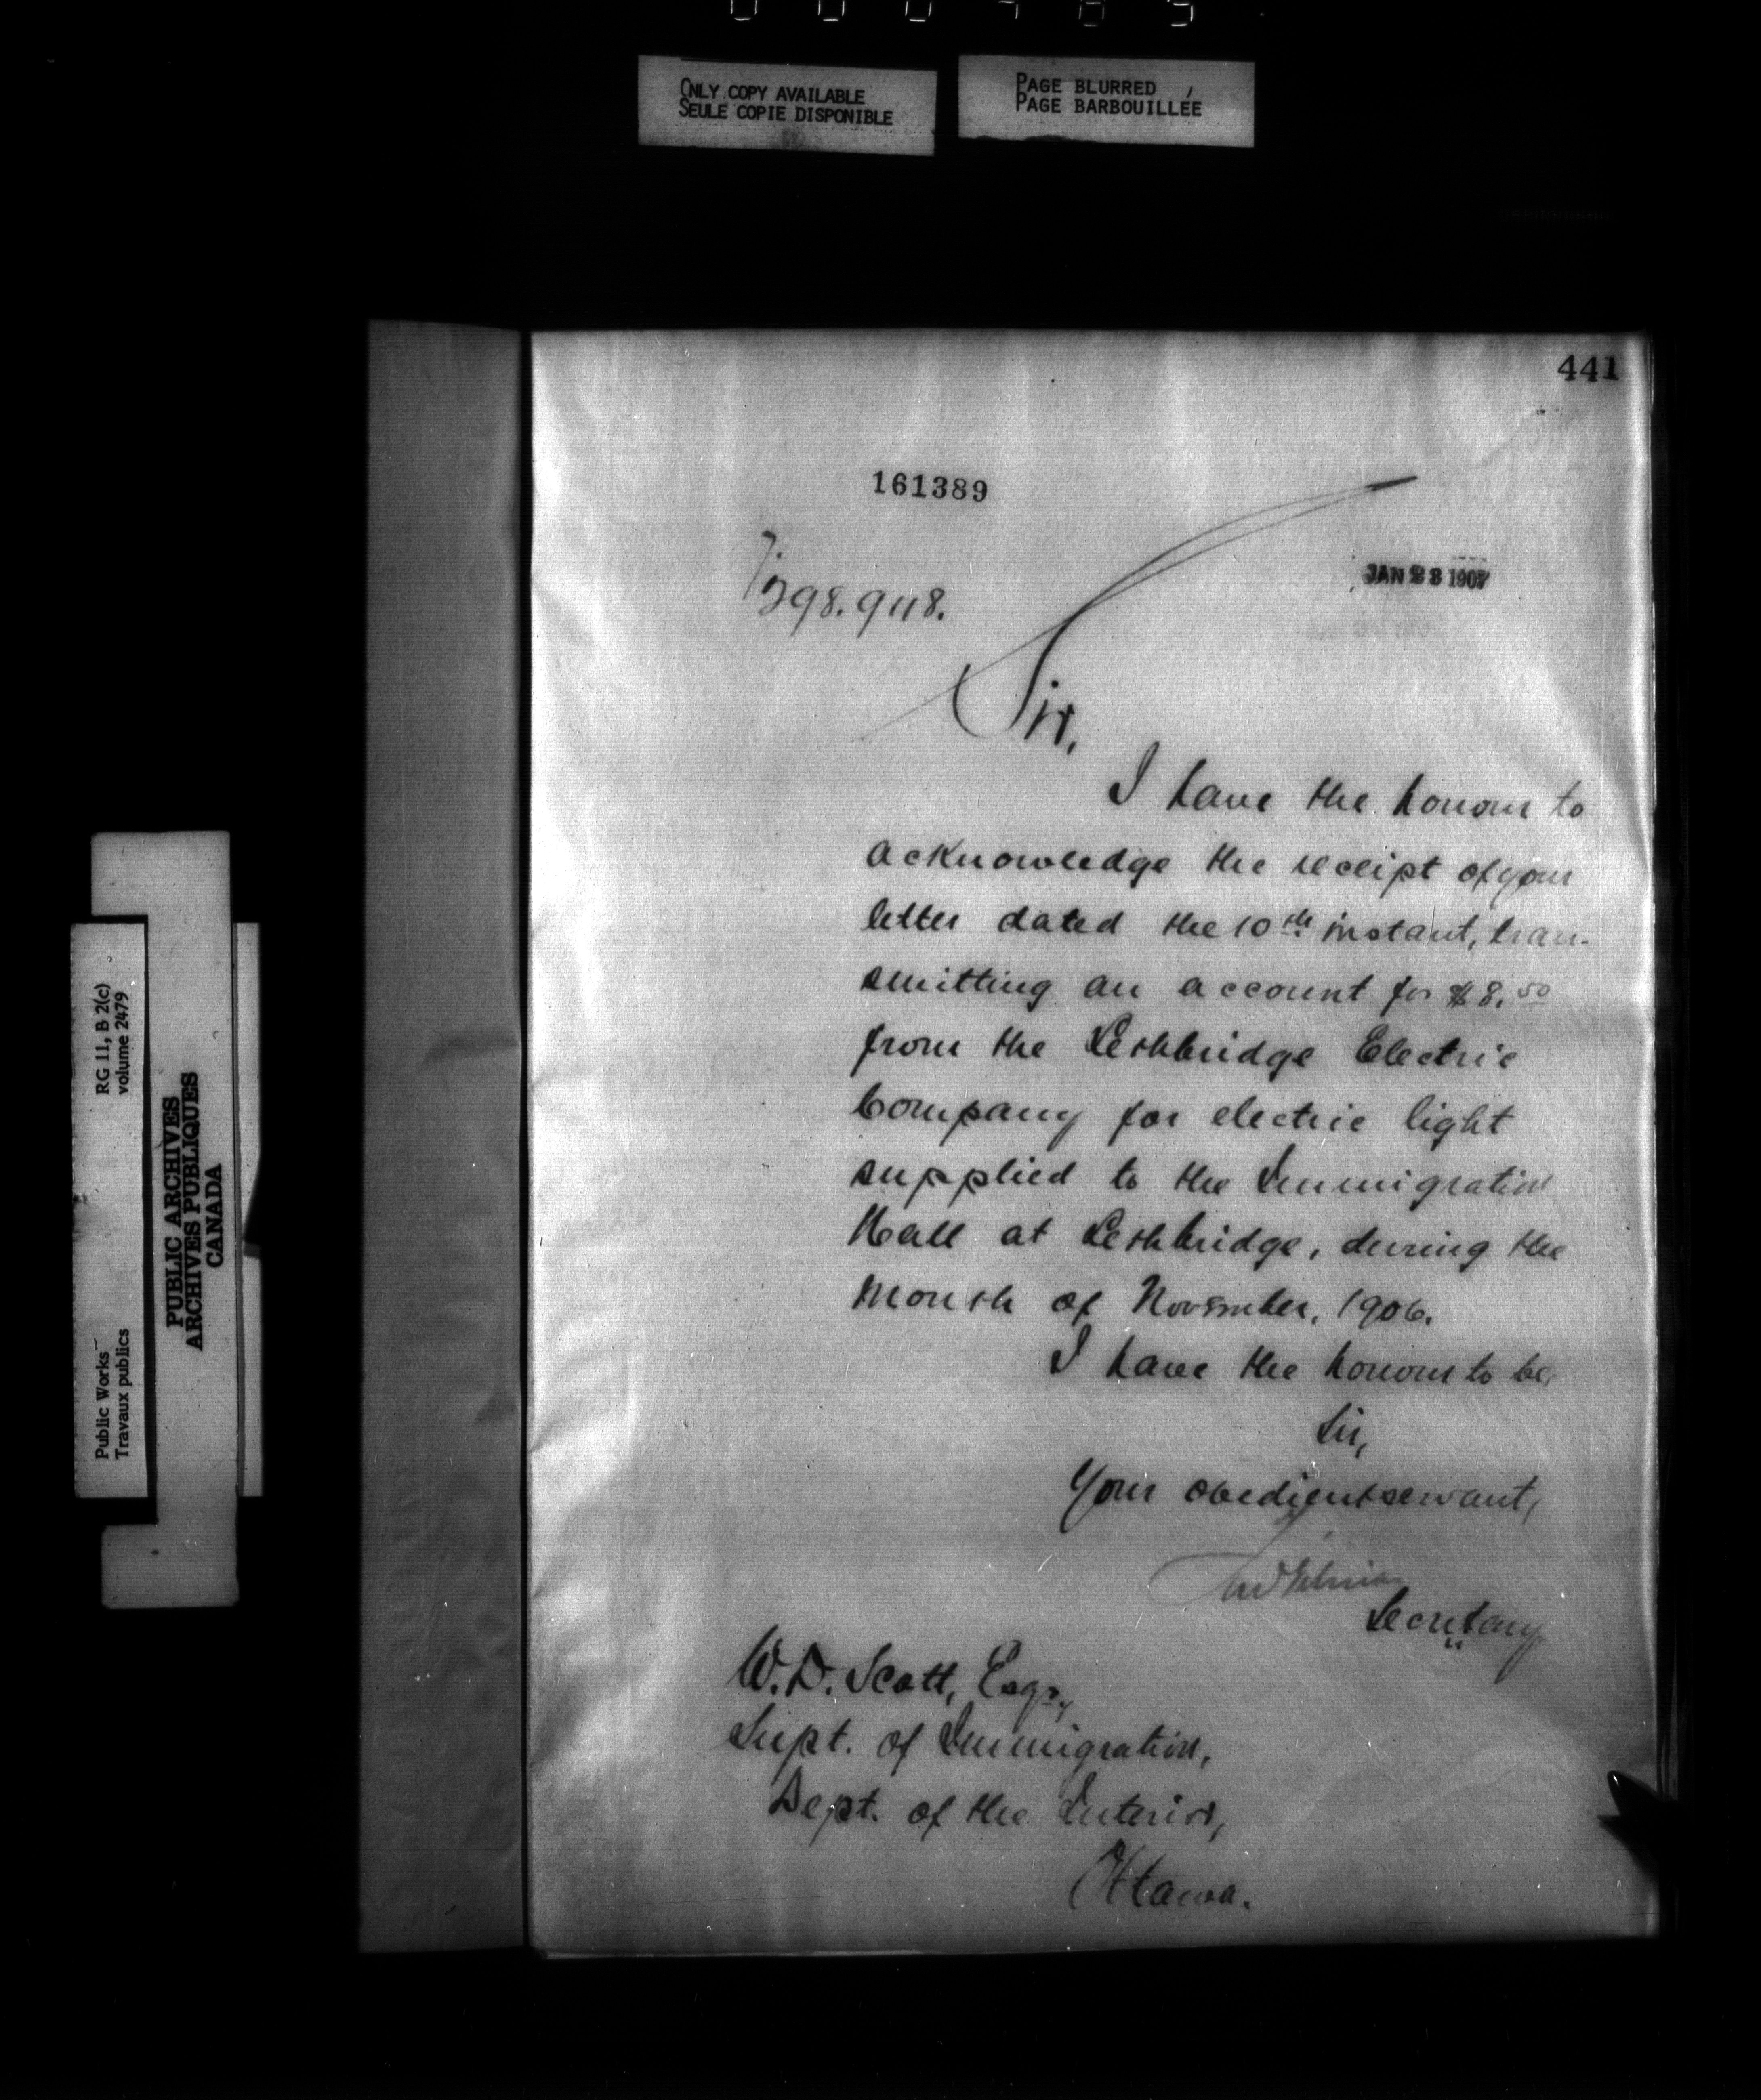 ONLY COPY AVAILABLE
SEULE COPIE DISPONIBLE
PAGE BLURRED
PAGE BARBOUILLÉE
441
161389
JAN 23 1907
298.948.
Sir,
I have the honour to
acknowledge the receipt of your
letter dated the 10th instant, tran-
smitting an account for $8.50
from the Lethbridge Electric
Company for electric light
supplied to the Immigration
Hall at Lethbridge, during the
month of November, 1906.
I have the honour to be,
Sir,
Your obedient servant,
Secretary
W. D. Scott, Esqr.,
Supt. of Immigration,
Dept. of the Interior,
Ottawa.
RG 11, B 2(c)
volume 2479
Public Works
Travaux publics
PUBLIC ARCHIVES
ARCHIVES PUBLIQUES
CANADA